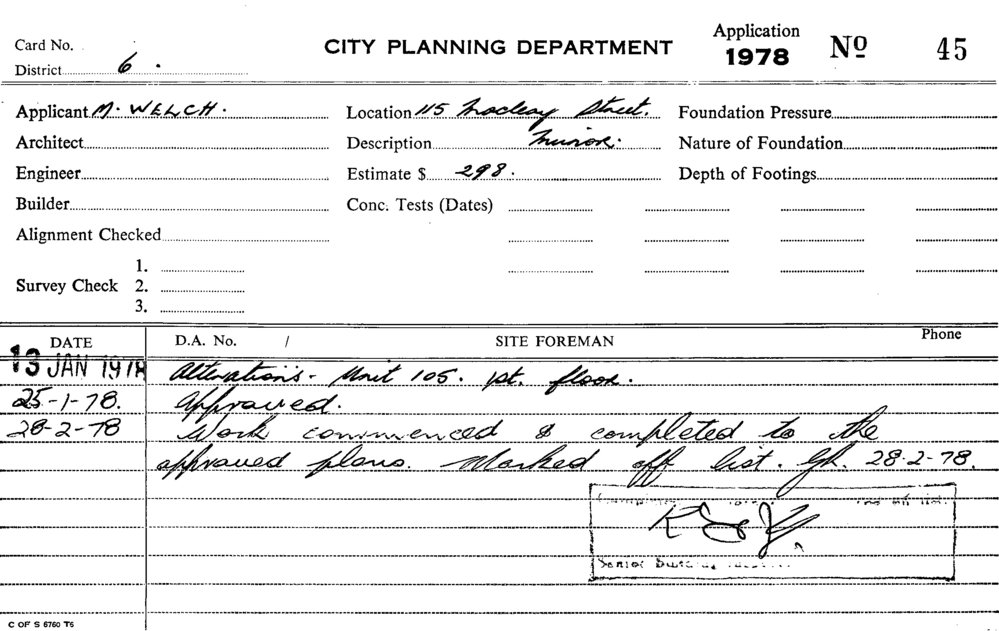 Card No.
CITY PLANNING DEPARTMENT
Application
1978 No 45
District 6
Applicant M. WELCH.
Location 115 Macleay Street.
Foundation Pressure
Architect
Description Minor.
Nature of Foundation
Engineer
Estimate $ 298.
Depth of Footings
Builder
Conc. Tests (Dates)
Alignment Checked
Survey Check 1.
2.
3.
DATE D.A. No. / SITE FOREMAN Phone
13 JAN 1978 Alterations - Unit 105. 1st. floor.
25-1-78. Approved.
28-2-78 Work commenced & completed to the
approved plans. Marked off list. 28-2-78.
Senior
C OF S 6760 T6